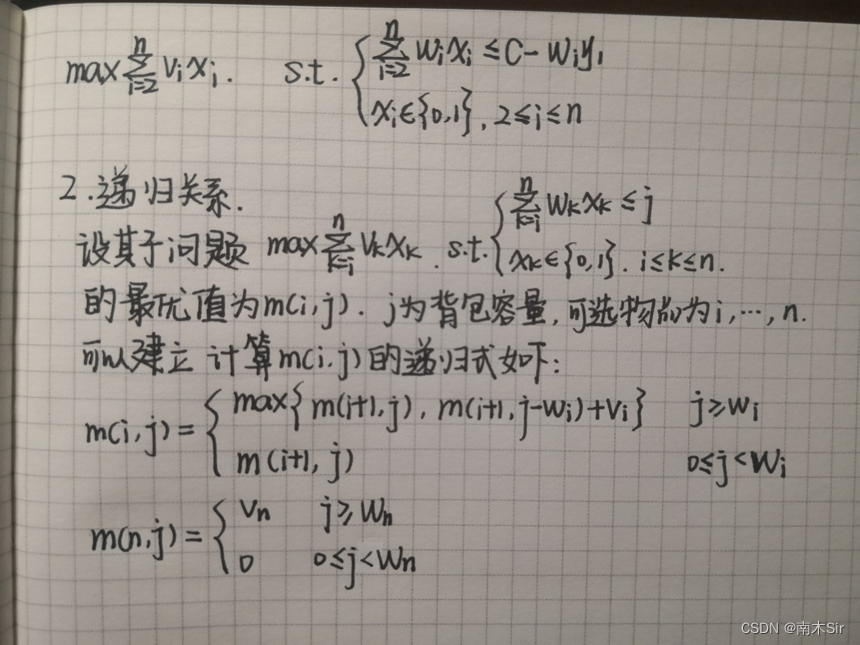 max∑_{i=2}^{n} vᵢxᵢ. s.t. { ∑_{i=2}^{n} wᵢxᵢ ≤ C - wᵢy₁
xᵢ∈{0,1}, 2≤i≤n
2.递归关系.
设其子问题 max∑_{k=i}^{n} VₖXₖ. s.t. { ∑_{k=i}^{n} WₖXₖ ≤ j
Xₖ∈{0,1}. i≤k≤n.
的最优值为m(i,j). j为背包容量,可选物品为i,…,n.
可以建立计算m(i,j)的递归式如下:
m(i,j) = { max{m(i+1,j), m(i+1,j-wᵢ)+vᵢ} j≥wᵢ
m(i+1,j) 0≤j<wᵢ
m(n,j) = { vₙ j≥wₙ
0 0≤j<wₙ
CSDN @南木Sir